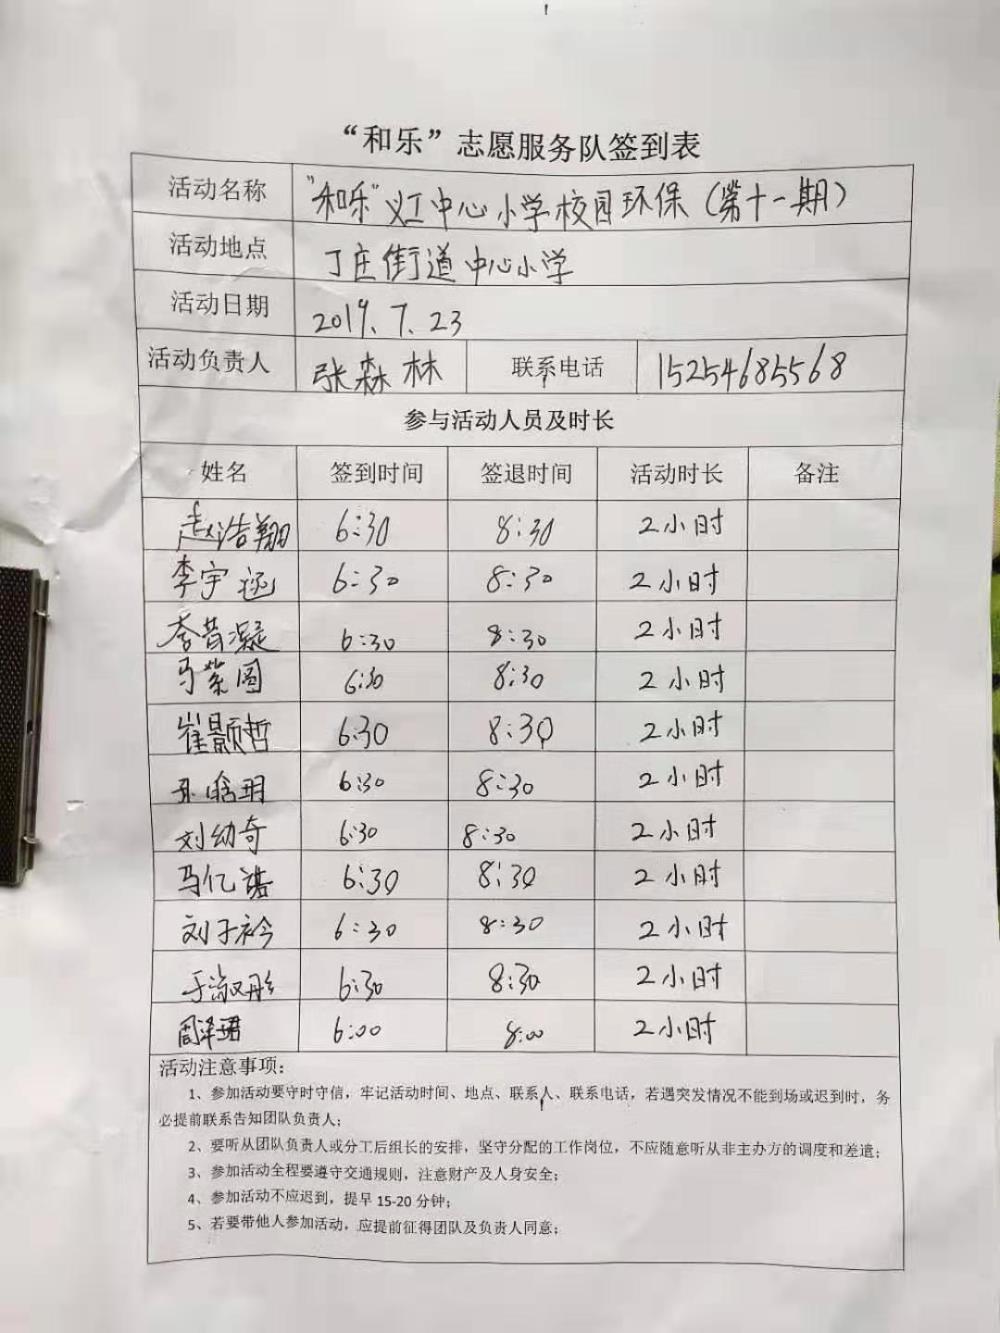 “和乐”志愿服务队签到表
活动名称 “和乐”义工中心小学校园环保（第十一期）
活动地点 丁庄街道中心小学
活动日期 2019.7.23
活动负责人 张森林 联系电话 15254685568
参与活动人员及时长
姓名 签到时间 签退时间 活动时长 备注
赵浩翔 6:30 8:30 2小时
李宇涵 6:30 8:30 2小时
李昔凝 6:30 8:30 2小时
马紫图 6:30 8:30 2小时
崔颢哲 6:30 8:30 2小时
孙晗玥 6:30 8:30 2小时
刘幼奇 6:30 8:30 2小时
马亿诺 6:30 8:30 2小时
刘子衿 6:30 8:30 2小时
于淑彤 6:30 8:30 2小时
周泽珺 6:00 8:00 2小时
活动注意事项：
1、参加活动要守时守信，牢记活动时间、地点、联系人、联系电话，若遇突发情况不能到场或迟到时，务
必提前联系告知团队负责人；
2、要听从团队负责人或分工后组长的安排，坚守分配的工作岗位，不应随意听从非主办方的调度和差遣；
3、参加活动全程要遵守交通规则，注意财产及人身安全；
4、参加活动不应迟到，提早 15-20 分钟；
5、若要带他人参加活动，应提前征得团队及负责人同意；